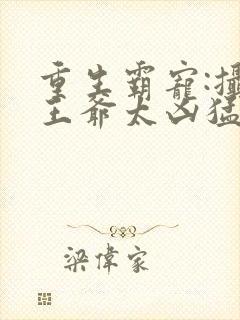 重生霸寵:攝
王爺太凶猛
梁偉家